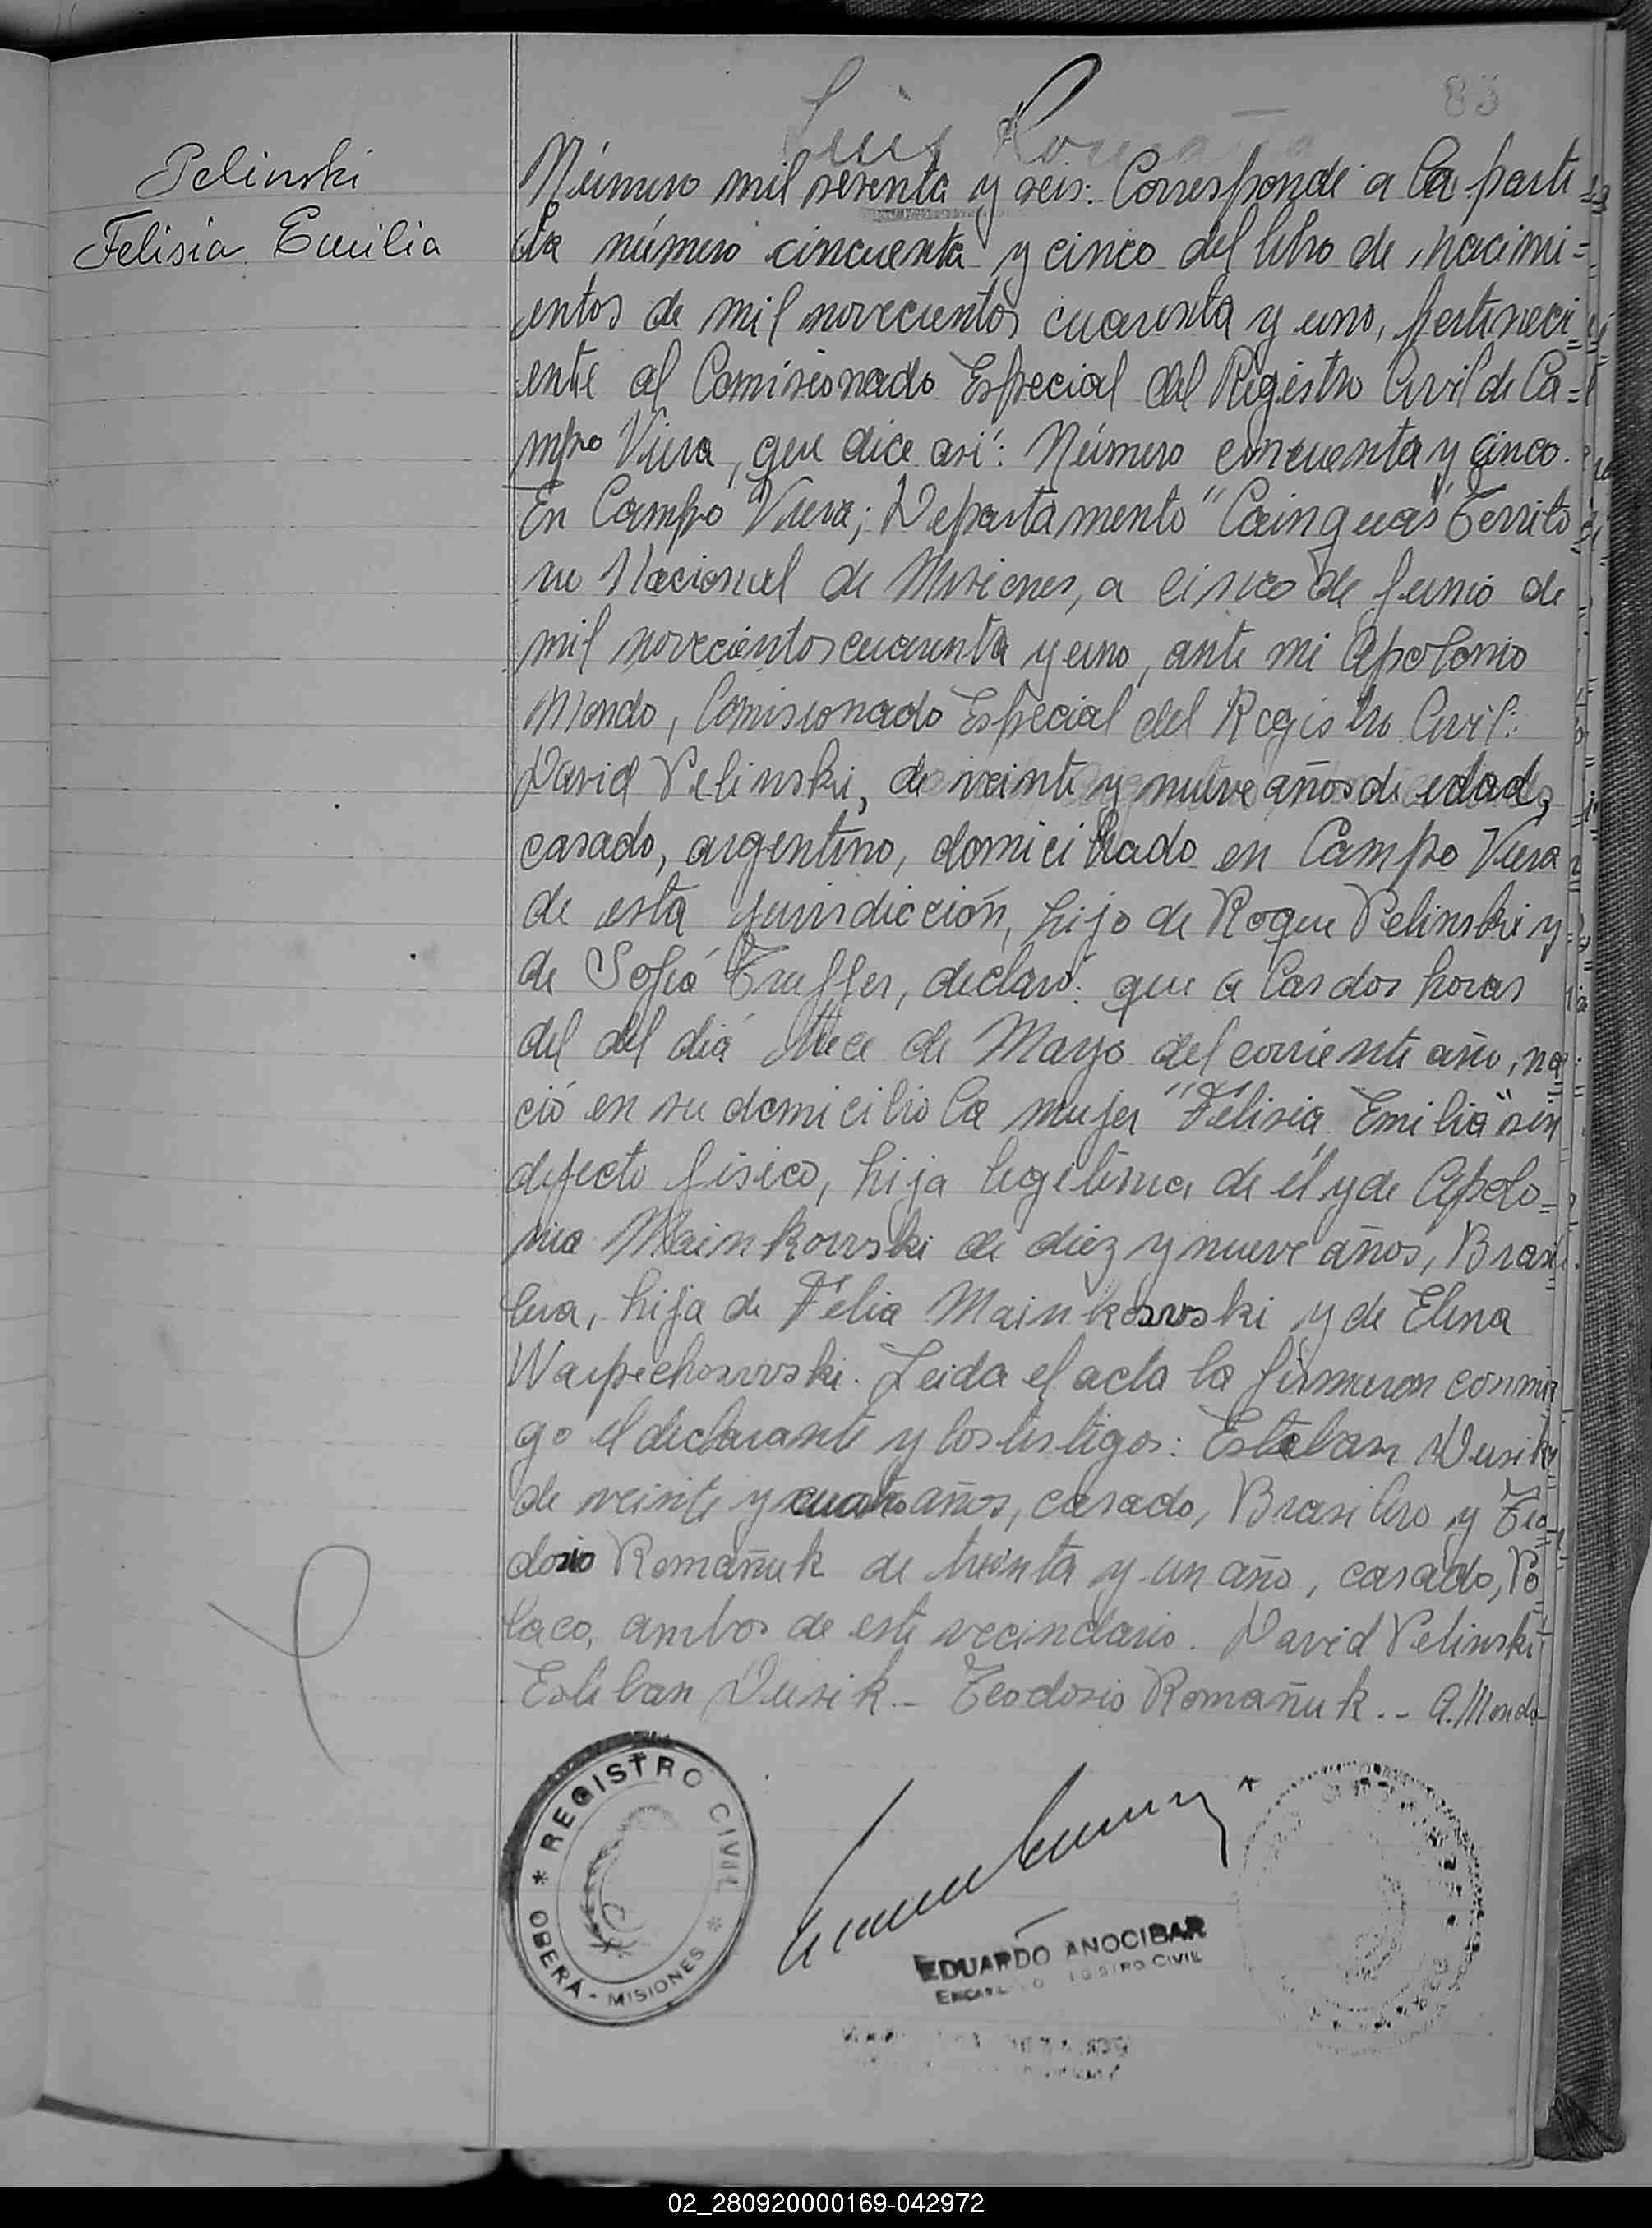 83
Luis Romaña
Pelinski
Felisia Emilia
Número mil sesenta y seis: Corresponde a la parti
da número cincuenta y cinco del libro de nacimi=
entos de mil novecientos cuarenta y uno, perteneci=
ente al Comisionado Especial del Registro Civil de Ca=
mpo Viera, que dice asi: Número cincuenta y cinco.
En Campo Viera; Departamento "Cainguas" Territo
rio Nacional de Misiones, a cinco de Junio de
mil novecientos cuarenta y uno, ante mi Apolonio
Mondo, Comisionado Especial del Registro Civil:
David Pelinski, de veinte y nueve años de edad,
casado, argentino, domiciliado en Campo Viera
de esta jurisdicción, hijo de Roque Pelinski y
de Sofiá Truffer, declaró: que a las dos horas
del del diá trece de Mayo del corriente año, na
ció en su domicilio la mujer "Felisia Emilia" sin
defecto fisico, hija legitima de él y de Apolo=
nia Mainkowski de diez y nueve años, Brasi
lera, hija de Felia Mainkowski y de Elena
Waipechowski. Leida el acta la firmaron conmi
go el declarante y los testigos: Esteban Dusik
de veinte y cuatro años, casado, Brasilero y Teo
dosio Romañuk de treinta y un año, casado, Po
laco, ambos de este vecindario. David Pelinski
Esteban Dusik.- Teodosio Romañuk.- A. Mondo
* REGISTRO CIVIL *
OBERÁ - MISIONES
EDUARDO ANOCIBAR
REGISTRO CIVIL
02_280920000169-042972